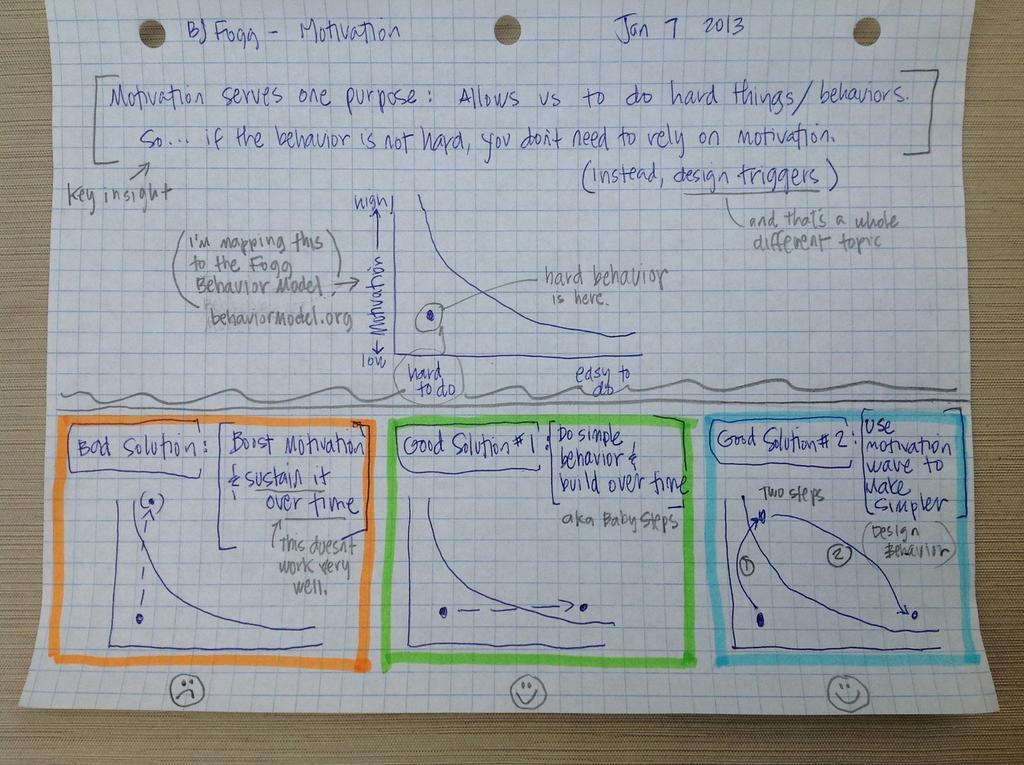 BJ Fogg - Motivation
Jan 7 2013
Motivation serves one purpose: Allows us to do hard things/behaviors.
So... if the behavior is not hard, you don't need to rely on motivation.
(Instead, design triggers)
Key insight
and that's a whole
different topic
(I'm mapping this
to the Fogg
Behavior Model.
behaviormodel.org
high
Motivation
low
hard behavior
is here.
hard
to do
easy to
do
Bad Solution:
Boost Motivation
& sustain it
over time
This doesn't
work very
well.
Good Solution #1:
Do simple
behavior &
build over time
aka Baby Steps
Good Solution #2:
Use
motivation
wave to
make
simpler
Two steps
(Design
Behavior)
1
2